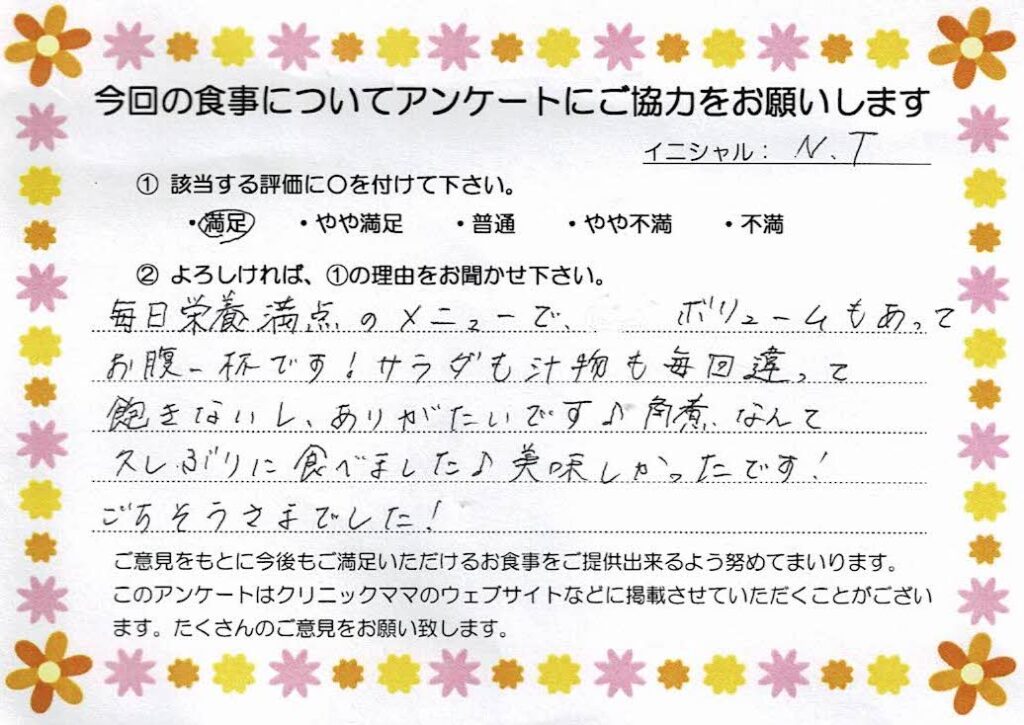 今回の食事についてアンケートにご協力をお願いします
イニシャル： N.T
① 該当する評価に〇を付けて下さい。
・満足 ・やや満足 ・普通 ・やや不満 ・不満
② よろしければ、①の理由をお聞かせ下さい。
毎日栄養満点のメニューで、 ボリュームもあって
お腹一杯です！サラダも汁物も毎回違って
飽きないし、ありがたいです♪角煮なんて
久しぶりに食べました♪美味しかったです！
ごちそうさまでした！
ご意見をもとに今後もご満足いただけるお食事をご提供出来るよう努めてまいります。
このアンケートはクリニックママのウェブサイトなどに掲載させていただくことがござい
ます。たくさんのご意見をお願い致します。